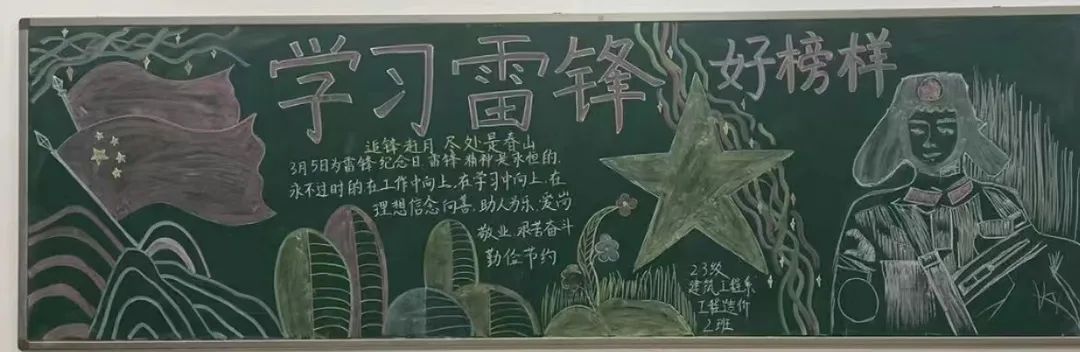 学习雷锋 好榜样
追锋赶月 尽处是春山
3月5日为雷锋纪念日,雷锋精神是永恒的,
永不过时的在工作中向上,在学习中向上,在
理想信念向善,助人为乐、爱岗
敬业,艰苦奋斗
勤俭节约
23级
建筑工程系
工程造价
2班